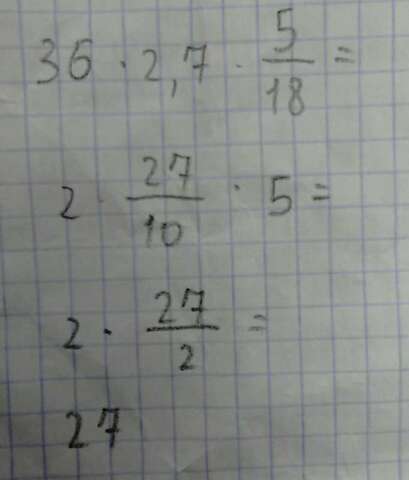 36 · 2,7 · 5/18 =
2 · 27/10 · 5 =
2 · 27/2 =
27